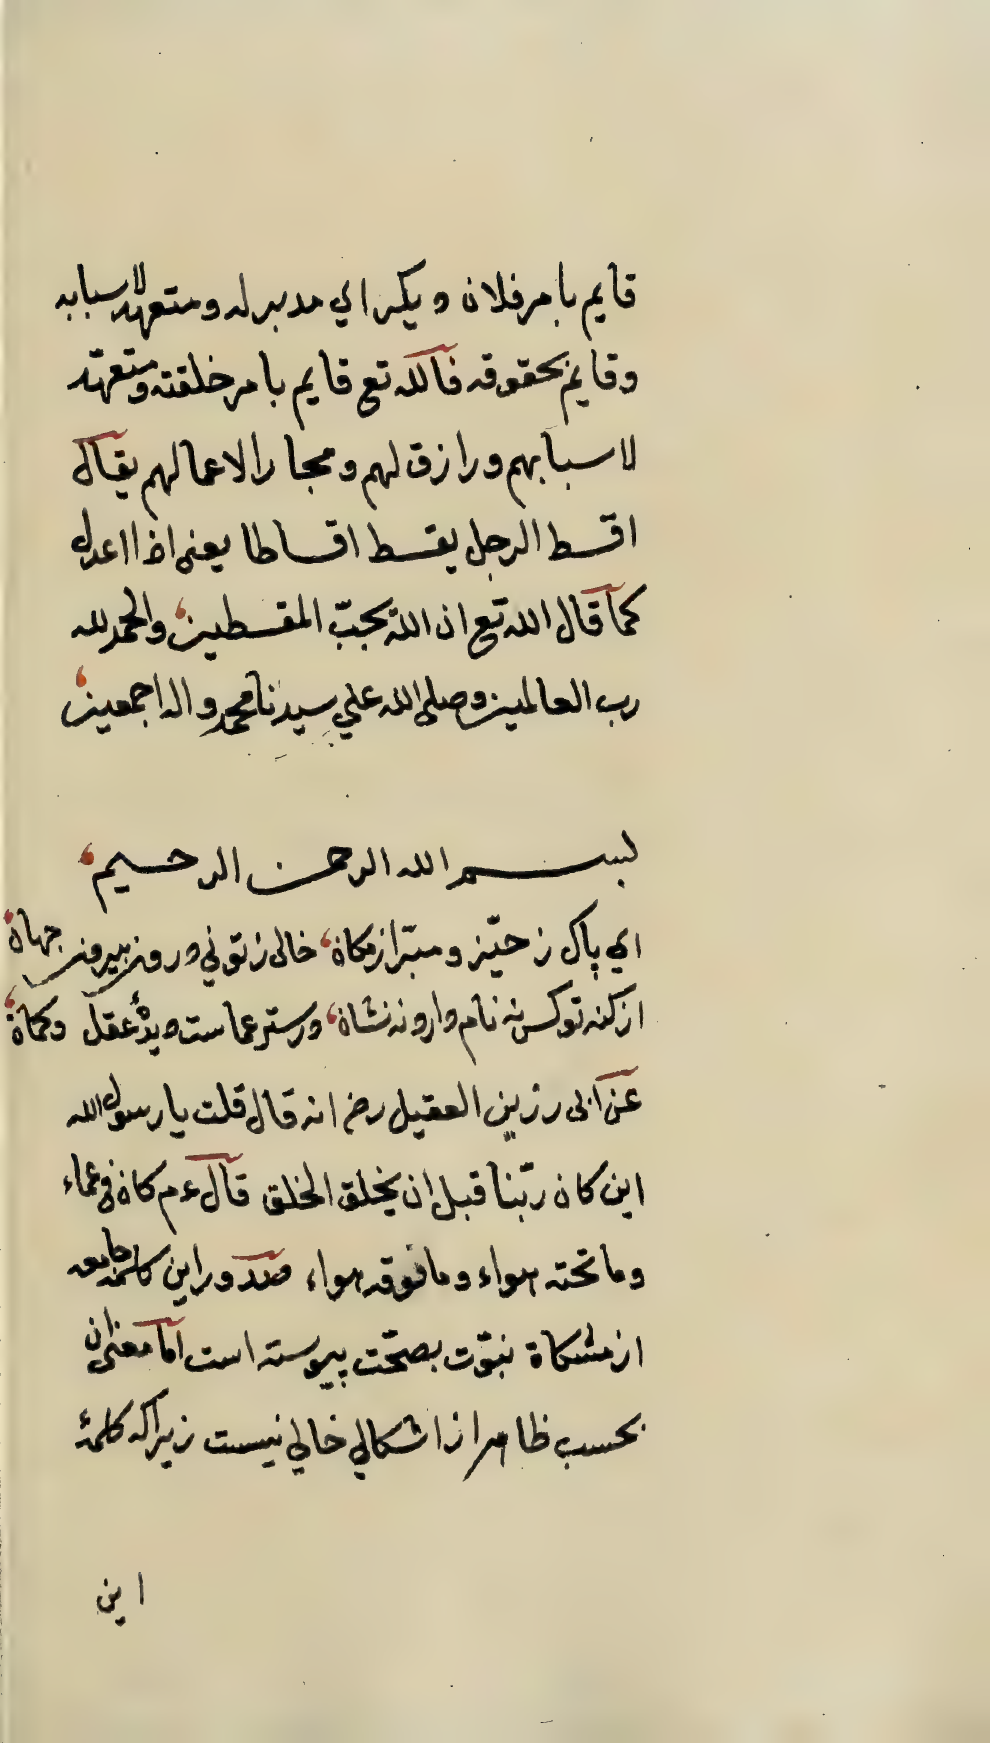 قايم بامر فلان ديكر اي مدبر له ومتعهد لاسبابه
وقايم بحقوقه فالله تع قايم بامر خلقته ومتعهد
لاسبابهم ورازق لهم ومجاز الاعمالهم يقال
اقسط الرجل يقسط اقساطا يعنى اذا اعدل
كما قال الله تع ان الله يحبّ المقسطين والحمد لله
رب العالمين وصلى الله علي سيدنا محمد واله اجمعين
بسم الله الرحمن الرحيم
اي پاك ز حيّز ومبرّا ز مكان خالى ز تو ني درون بيرون جهان
از كنه تو كس نه نام داردنه نشان در ستر عماست ديدۀ عقل وكمان
عن ابى رزين العقيل رضـ انه قال قلت يا رسول الله
اين كان ربّنا قبل ان يخلق الخلق قال عم كان فى عماء
وما تحته هواء وما فوقه هواء ورود اين كلمه جامعه
از مشكاة نبوّت بصحّت پيوسته است امّا معنى ان
بحسب ظاهر از اشكالي خالي نيست زيراكه كلمۀ
اين